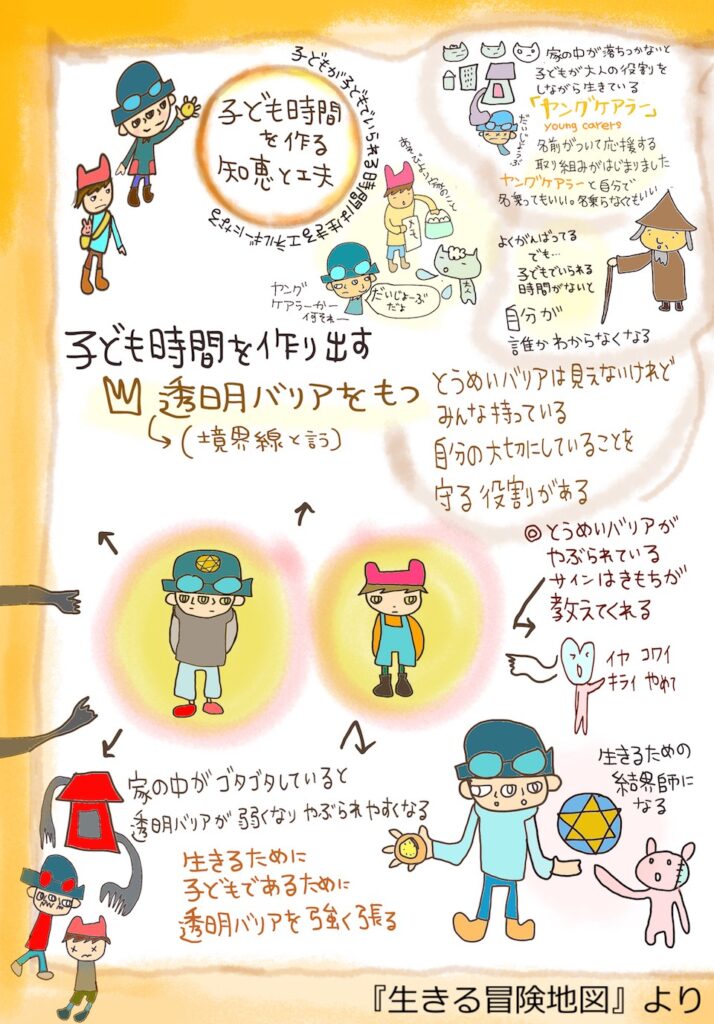 子ども時間
を作る
知恵と工夫
子どもが子どもでいられる時間は生きるエネルギーになる
家の中が落ちつかないと
子どもが大人の役割を
しながら生きている
「ヤングケアラー」
young carers
だいじょーぶ
名前がついて応援する
取り組みがはじまりました
ヤングケアラーと自分で
名乗ってもいい。名乗らなくてもいい
メモ
大人
ヤング
ケアラーかー
何それー
だいじょーぶ
だよ
よくがんばってる
でも…
子どもでいられる
時間がないと
自分が
誰かわからなくなる
子ども時間を作り出す
透明バリアをもつ
(境界線と言う)
とうめいバリアは見えないけれど
みんな持っている
自分の大切にしていることを
守る役割がある
◎とうめいバリアが
やぶられている
サインはきもちが
教えてくれる
イヤ コワイ
キライ やめて
家の中がゴタゴタしていると
透明バリアが弱くなりやぶられやすくなる
生きるために
子どもであるために
透明バリアを強く張る
生きるための
結界師に
なる
『生きる冒険地図』より